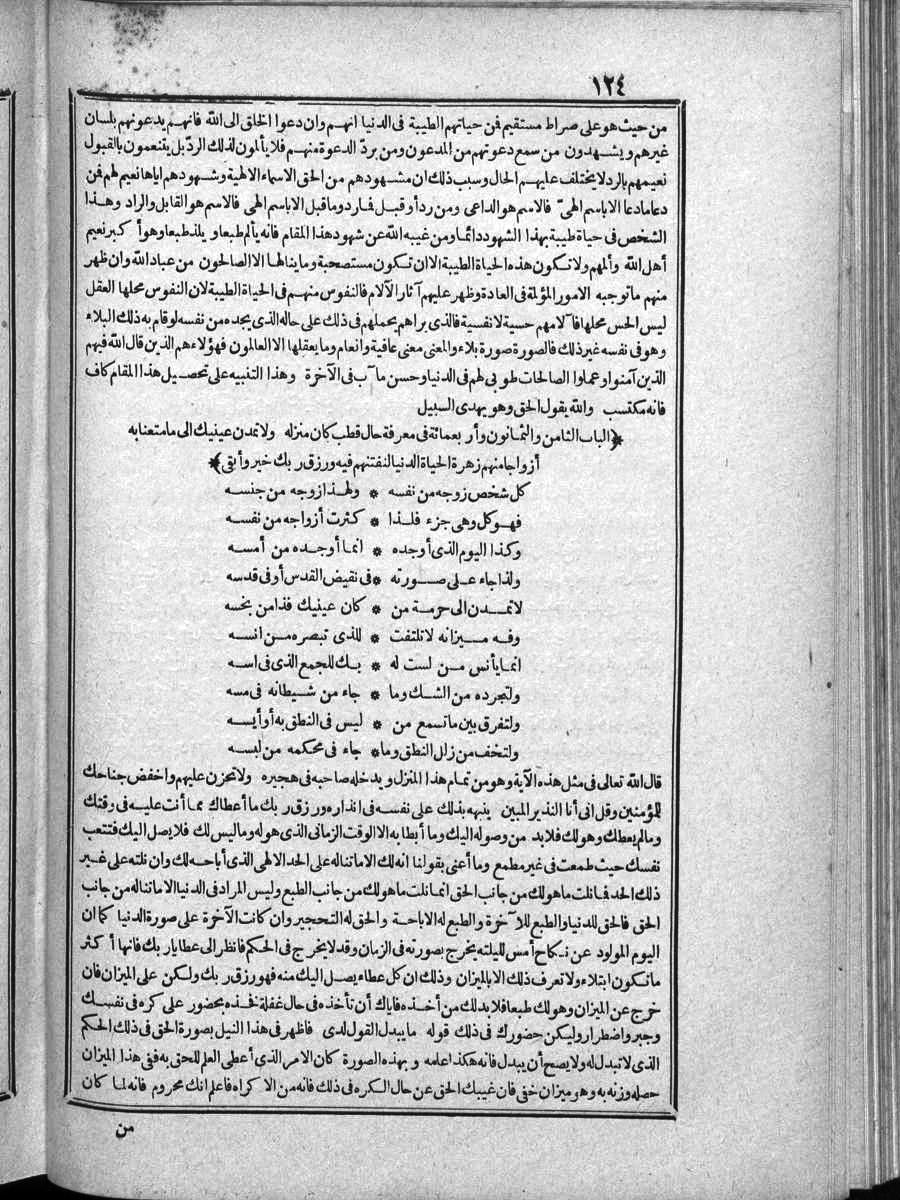 ١٢٤
من حيث هو على صراط مستقيم فن حياتهم الطيبة فى الدنيا انهم وان دعوا الخلق الى الله فانهم يدعونهم بلسان
غيرهم ويشهدون من سمع دعوتهم من المدعون ومن يردّ الدعوة منهم فلا يألمون لذلك الردّ بل يتنعمون بالقبول
نعيمهم بالرد لا يختلف عليهم الحال وسبب ذلك ان مشهودهم من الحق الاسماء الالهية وشهودهم اياها نعيم لهم فن
دعا مادعا الا باسم الهىّ فالاسم هو الداعى ومن ردّ أو قبل فارد وما قبل الا باسم الهى فالاسم هو القابل والراد وهذا
الشخص فى حياة طيبة بهذا الشهود دائما ومن غيبه الله عن شهود هذا المقام فانه يألم طبعا ويلذ طبعا وهو أكبر نعيم
أهل الله وألمهم ولا تكون هذه الحياة الطيبة الا ان تكون مستصحبة وما ينالها الا الصالحون من عباد الله وان ظهر
منهم ما توجبه الامور المؤلمة فى العادة وظهر عليهم آثار الآلام فالنفوس منهم فى الحياة الطيبة لان النفوس محلها العقل
ليس الحس محلها فآلامهم حسية لا نفسية فالذى يراهم يحملهم فى ذلك على حاله الذى يجده من نفسه لو قام به ذلك البلاء
وهو فى نفسه غير ذلك فالصورة صورة بلاء والمعنى معنى عافية وانعام وما يعقلها الا العالمون فهؤلاء هم الذين قال الله فيهم
الذين آمنوا وعملوا الصالحات طوبى لهم فى الدنيا وحسن مآب فى الآخرة وهذا التنبيه على تحصيل هذا المقام كاف
فانه مكتسب والله يقول الحق وهو يهدى السبيل
﴿الباب الثامن والثمانون وأربعمائة فى معرفة حال قطب كان منزله ولا تمدن عينيك الى ما متعنا به
أزواجا منهم زهرة الحياة الدنيا لنفتنهم فيه ورزق ربك خير وأبقى﴾
كل شخص زوجه من نفسه * ولهذا زوجه من جنسه
فهو كل وهى جزء فلذا * كثرت أزواجه من نفسه
وكذا اليوم الذى أوجده * انما أوجده من أمسه
ولذا جاء على صورته * فى نقيض القدس أو فى قدسه
لا تمدن الى حرمة من * كان عينيك فذا من بخسه
وفه ميزانه لا تلتفت * للذى تبصره من انسه
انما يأنس من لست له * بك للجمع الذى فى اسه
ولتجرده من الشك وما * جاء من شيطانه فى مسه
ولتفرق بين ما تسمع من * ليس فى النطق به أو أيسه
ولتخف من زلل النطق وما * جاء فى محكمه من لبسه
قال الله تعالى فى مثل هذه الآية وهو من تمام هذا المنزل ويدخله صاحبه فى هجيره ولا تحزن عليهم واخفض جناحك
للمؤمنين وقل انى أنا النذير المبين ينبهه بذلك على نفسه فى انذاره ورزق ربك ما أعطاك مما أنت عليه فى وقتك
وما لم يعطك وهو لك فلا بد من وصوله اليك وما أبطا به الا الوقت الزمانى الذى هو له وما ليس لك فلا يصل اليك فتتعب
نفسك حيث طمعت فى غير مطمع وما أعنى بقولنا انه لك الا ما تناله على الحد الالهى الذى أباحه لك وان نلته على غير
ذلك الحد فما نلت ما هو لك من جانب الحق انما نلت ما هو لك من جانب الطبع وليس المراد فى الدنيا الا ما تناله من جانب
الحق فالحق للدنيا والطبع للآخرة والطبع له الاباحة والحق له التحجير وان كانت الآخرة على صورة الدنيا كما ان
اليوم المولود عن نكاح أمس لليلته يخرج بصورته فى الزمان وقد لا يخرج فى الحكم فانظر الى عطايا ربك فانها أكثر
ما تكون ابتلاء ولا تعرف ذلك الا بالميزان وذلك ان كل عطاء يصل اليك منه فهو رزق ربك ولكن على الميزان فان
خرج عن الميزان وهو لك طبعا فلا بد لك من أخذه فاياك أن تأخذه فى حال غفلة فخذه بحضور على كره فى نفسك
وجبر واضطرار وليكن حضورك فى ذلك قوله ما يبدل القول لدى فاظهر فى هذا النيل بصورة الحق فى ذلك الحكم
الذى لا تبدل له ولا يصح أن يبدل فانه هكذا علمه وبهذه الصورة كان الامر الذى أعطى العلم للحق به ففى هذا الميزان
حصله وزنه به وهو ميزان خفى فان غيبك الحق عن حال الكره فى ذلك فانه من الاكراه فاعلم انك محروم فانه لما كان
من